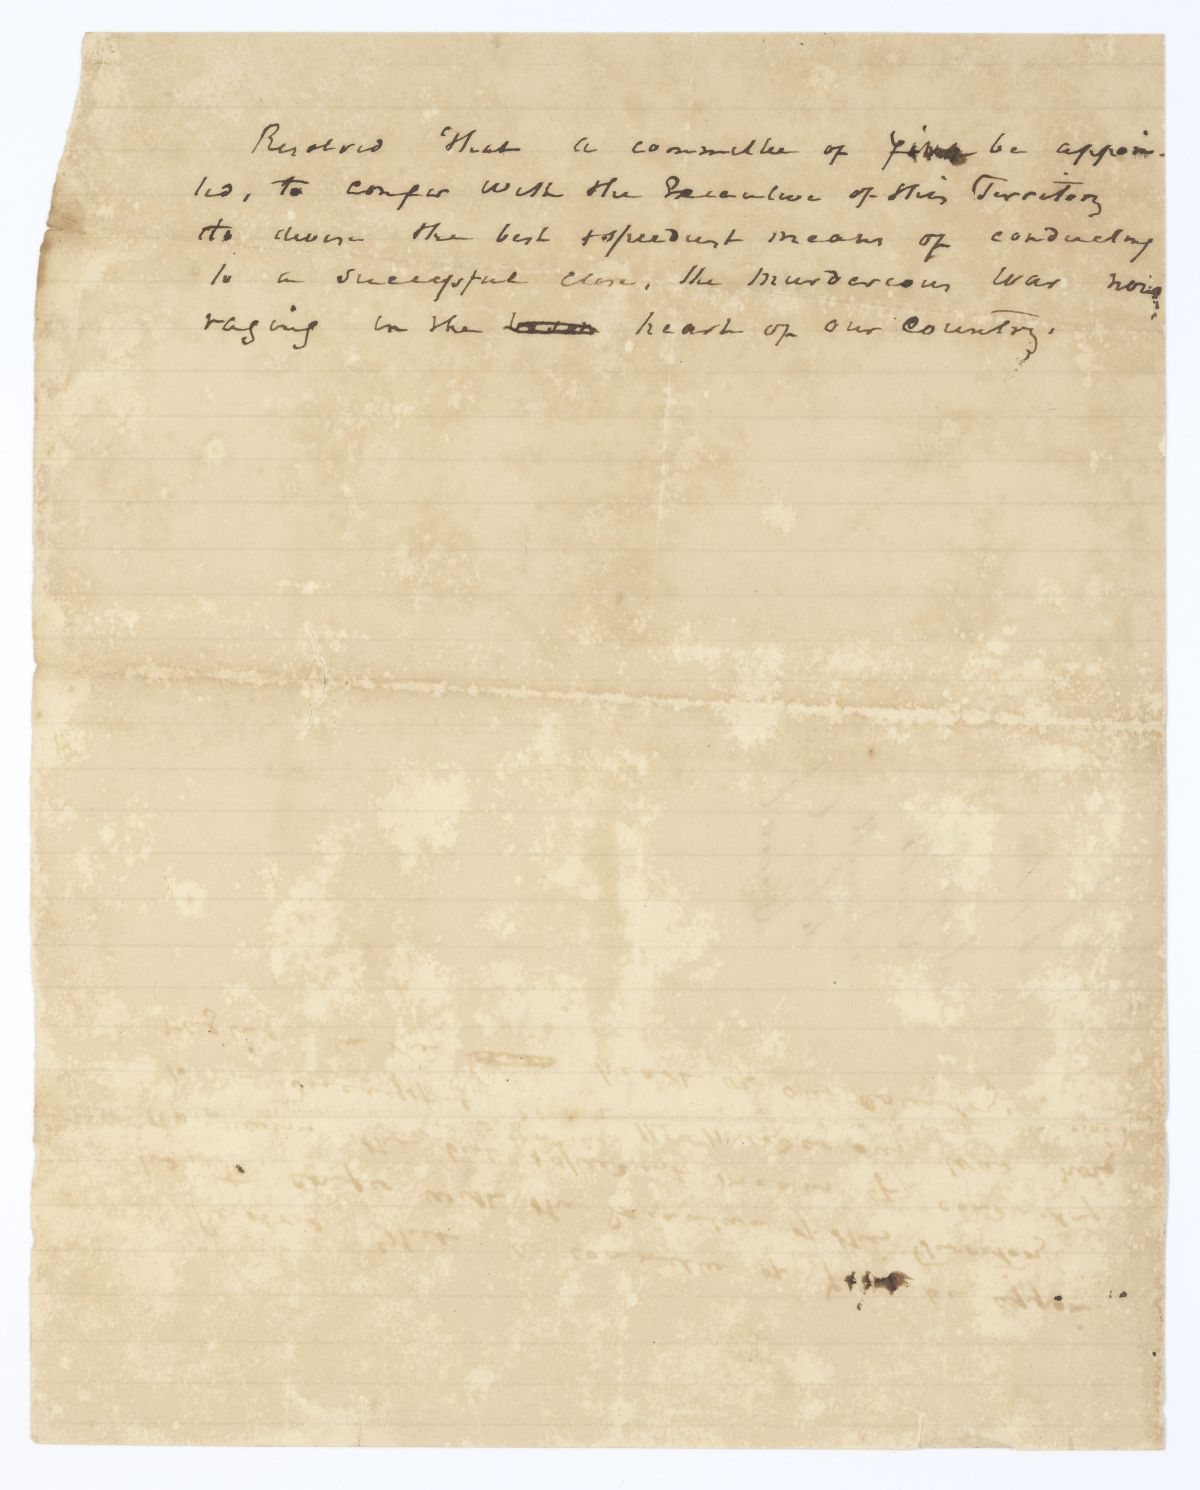 Resolved that a committee of five be appoin-
ted, to confer with the Executive of this Territory
to devise the best & speediest means of conducting
to a successful close, the murdereous war now
raging in the heart of our country.